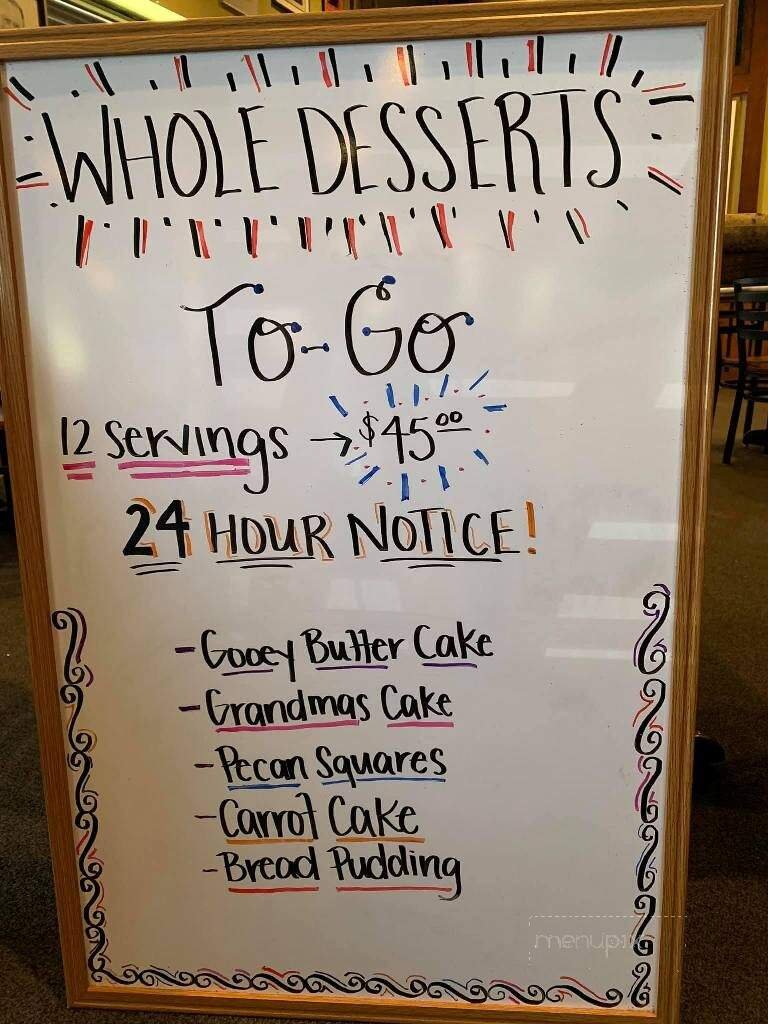 WHOLE DESSERTS
To-Go
12 Servings → $45.00
24 HOUR NOTICE!
- Gooey Butter Cake
- Grandmas Cake
- Pecan Squares
- Carrot Cake
- Bread Pudding
menupix